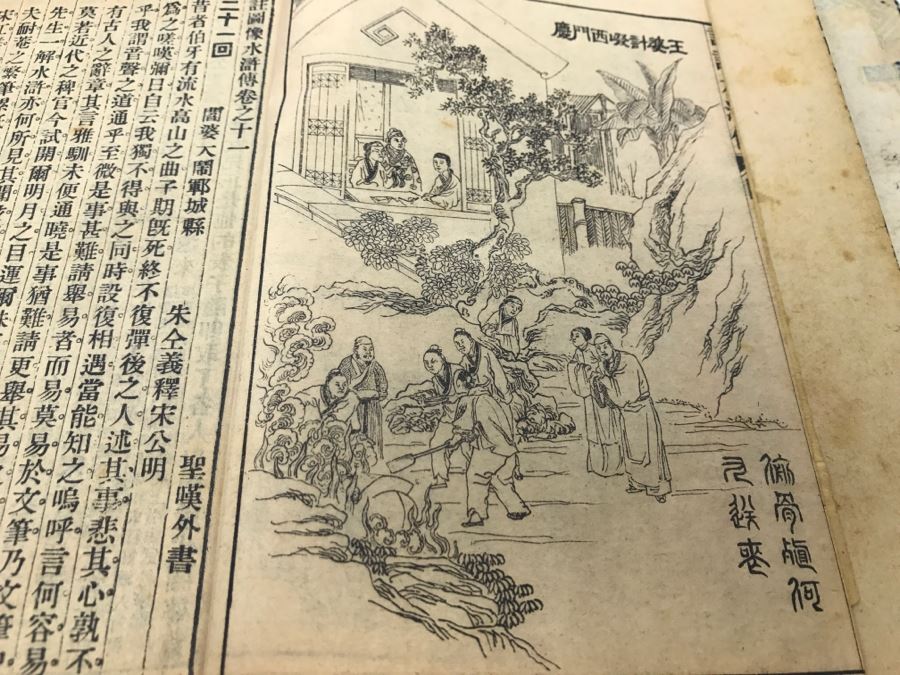 王婆計啜西門慶
偷骨殖何
九送喪
註圖像水滸傳卷之十一
二十一回 閻婆大鬧鄆城縣 朱仝義釋宋公明 聖嘆外書
昔者伯牙有流水高山之曲子期旣死終不復彈後之人述其事悲其心孰不
爲之嗟嘆彌日自云我獨不得與之同時設復相遇當能知之嗚呼言何容易
乎我謂音聲之道通乎至微是事甚難請舉易者而易莫易於文筆乃文筆中
有古人之辭章其言雅馴未便通曉是事猶難請更舉其易
莫若近代之稗官今試開爾明月之目運爾珠
先生一解水滸亦何所見其聞
夫耐菴之繁筆累